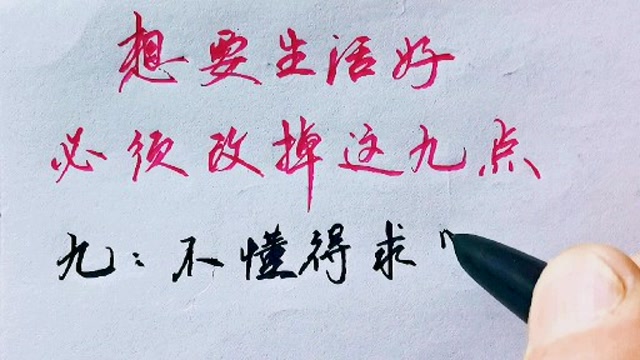 想要生活好
必须改掉这九点
九：不懂得求